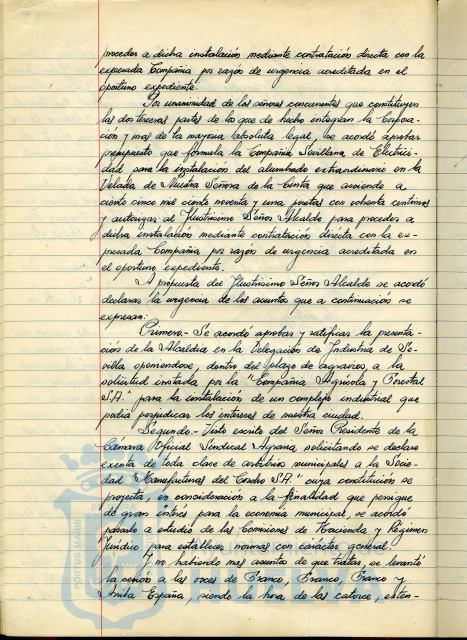 proceder a dicha instalación mediante contratación directa con la
expresada Compañía por razón de urgencia acreditada en el
oportuno expediente.
Por unanimidad de los señores concurrentes que constituyen
las dos terceras partes de los que de hecho integran la Corpora-
ción y mas de la mayoría absoluta legal, se acordó aprobar
presupuesto que formula la Compañía Sevillana de Electrici-
dad para la instalación del alumbrado extraordinario en la
Velada de Nuestra Señora de la Cinta que asciende a
ciento cinco mil ciento noventa y una pesetas con ochenta centimos
y autorizar al Ilustrisimo Señor Alcalde para proceder a
dicha instalación mediante contratación directa con la ex-
presada Compañía por razón de urgencia acreditada en
el oportuno expediente.
A propuesta del Ilustrisimo Señor Alcalde se acordó
declarar la urgencia de los asuntos que a continuación se
expresan:
Primero.- Se acordó aprobar y ratificar la presenta-
ción de la Alcaldía en la Delegación de Industria de Se-
villa oponiendose, dentro del plazo de agravios, a la
solicitud instada por la "Compañía Agricola y Forestal
S.A." para la instalación de un complejo industrial que
podia perjudicar los intereses de nuestra ciudad.
Segundo.- Visto escrito del Señor Presidente de la
Cámara Oficial Sindical Agraria, solicitando se declare
exenta de toda clase de arbitrios municipales a la Socie-
dad "Manufacturas del Corcho S.A." cuya constitución se
proyecta, en consideración a la finalidad que persigue
de gran interés para la economia municipal, se acordó
pasarlo a estudio de las Comisiones de Hacienda y Régimen
Juridico para establecer normas con carácter general.
Y no habiendo mas asuntos de que tratar, se levantó
la sesión a las voces de Franco, Franco, Franco y
Arriba España, siendo la hora de las catorce, exten-
PORTUS MARIS